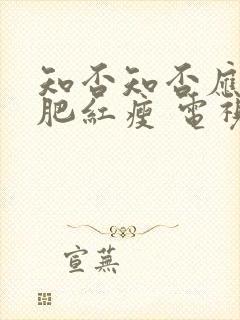 知否知否應
肥紅瘦 電視
宣蕪